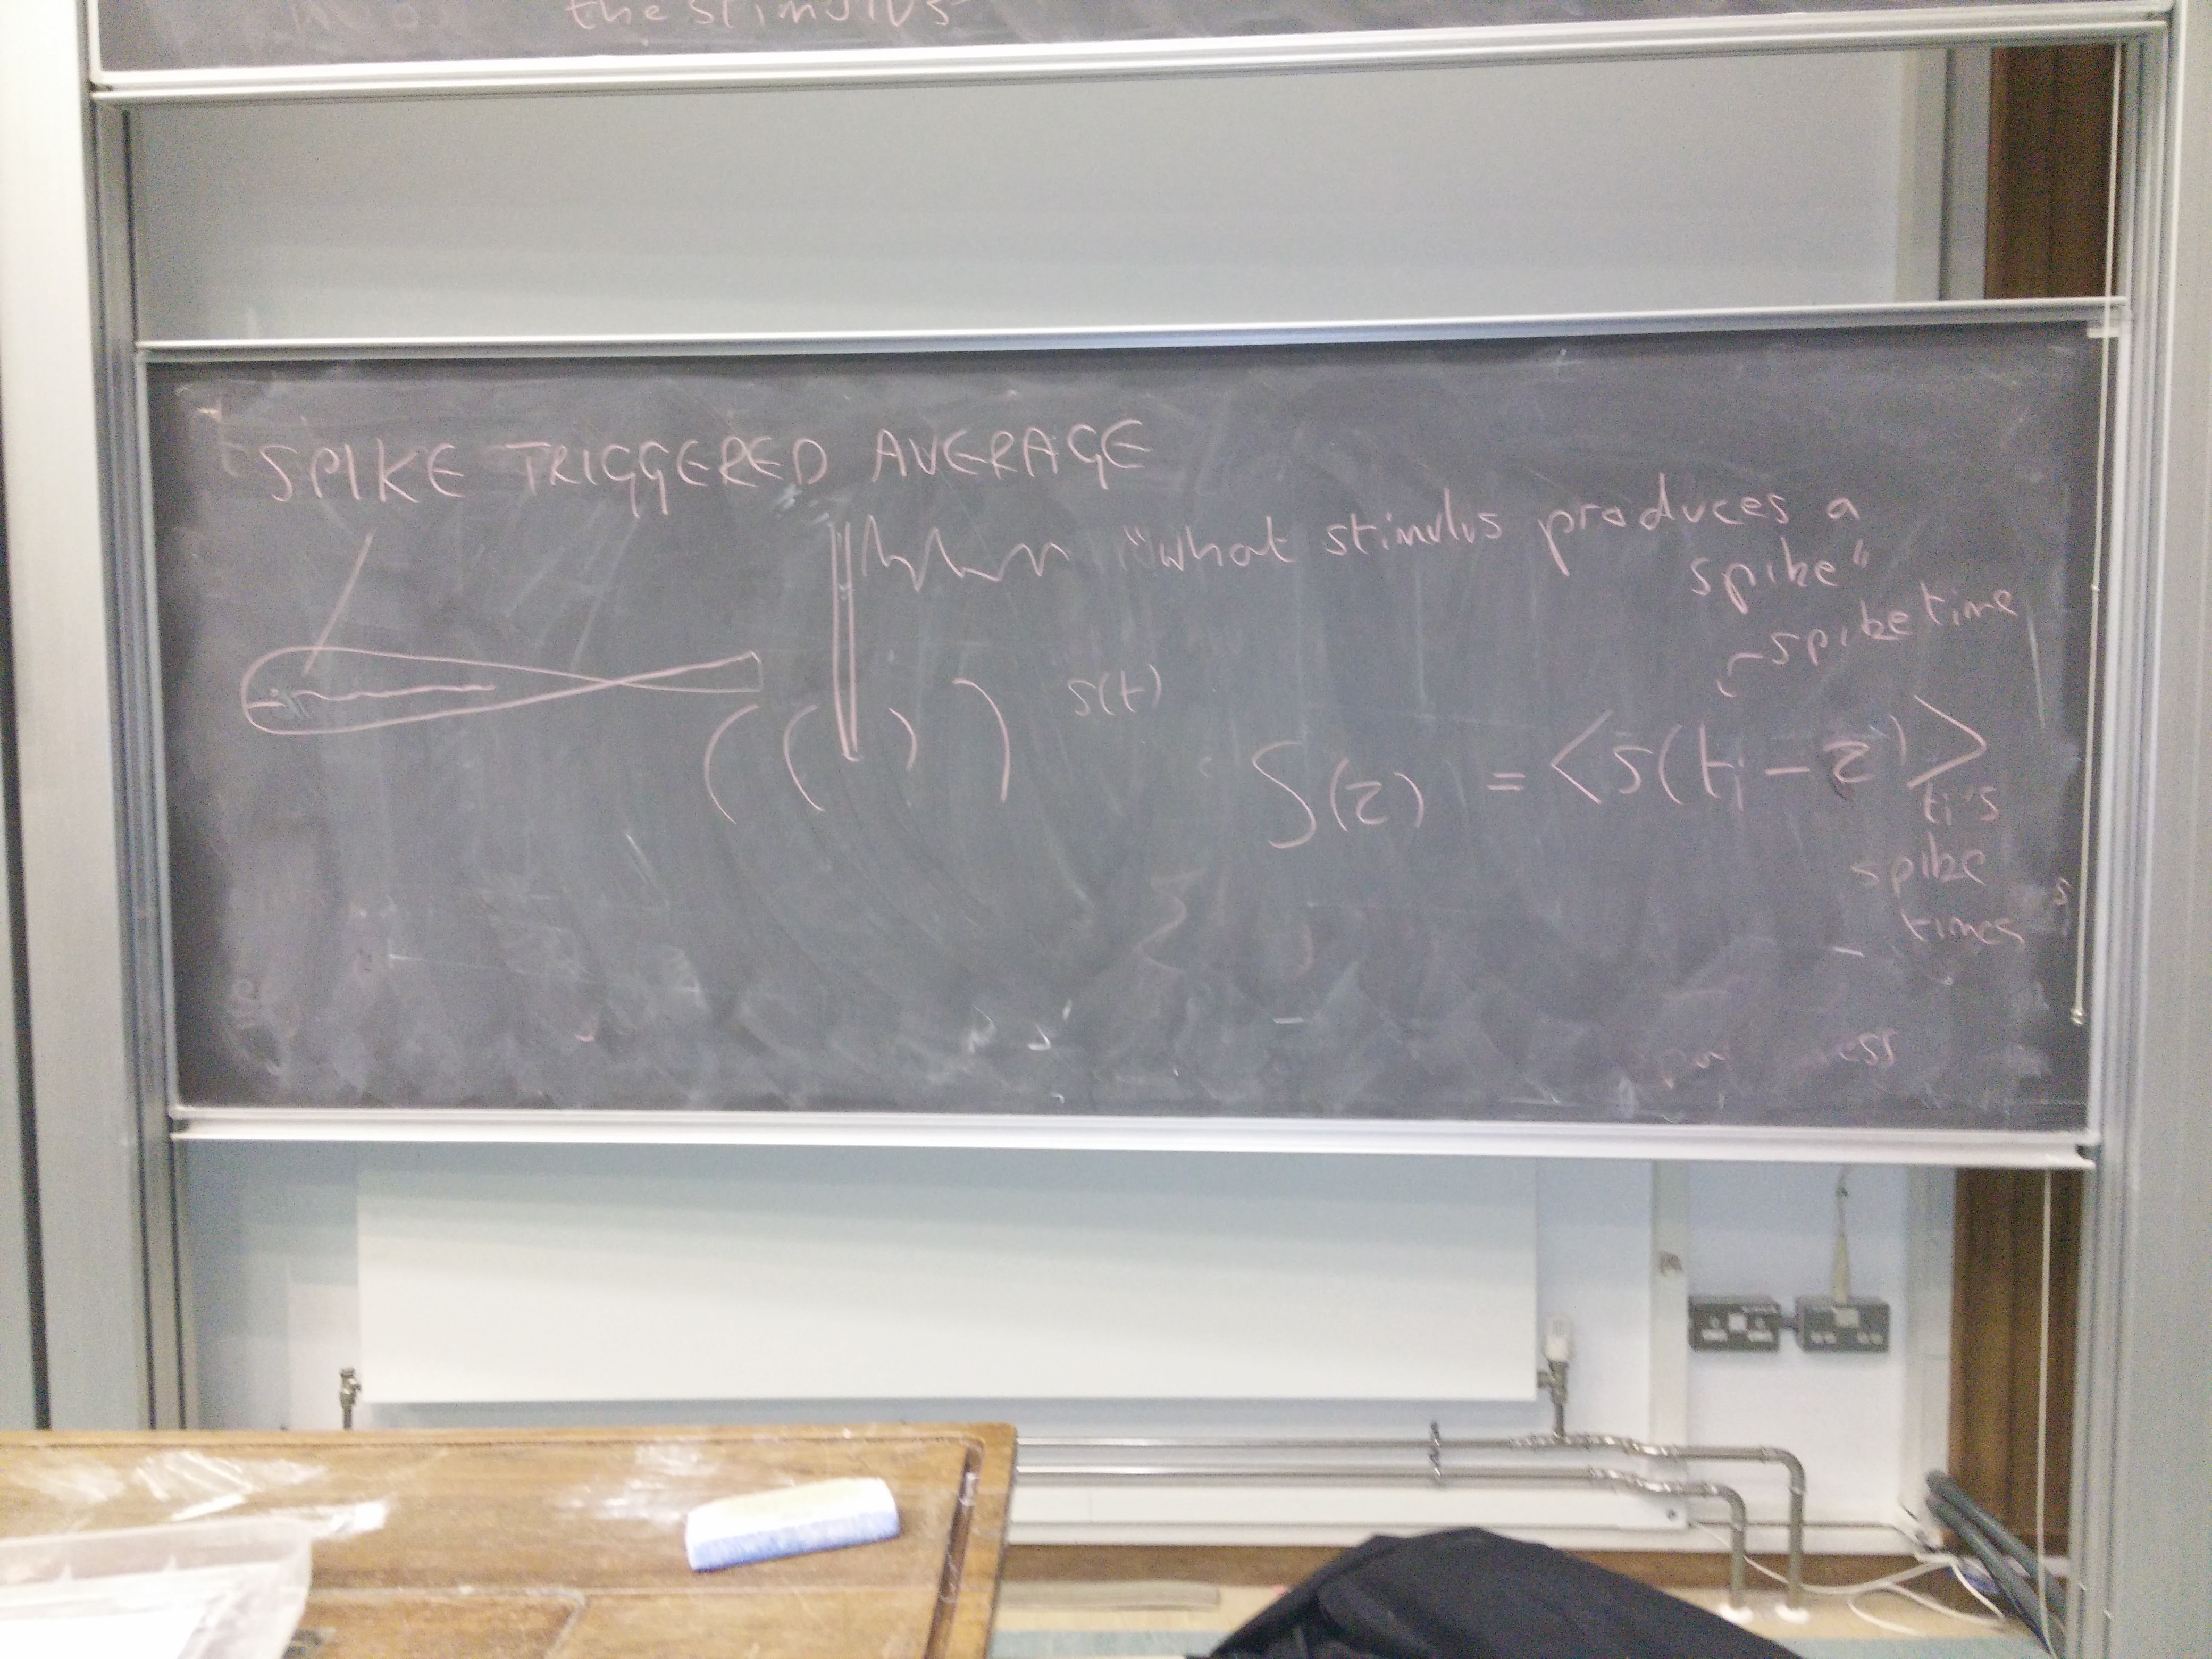 the stimulus
SPIKE TRIGGERED AVERAGE
"what stimulus produces a
spike"
spike time
s(t)
S(τ) = <s(ti - τ)>
ti's
spike
times